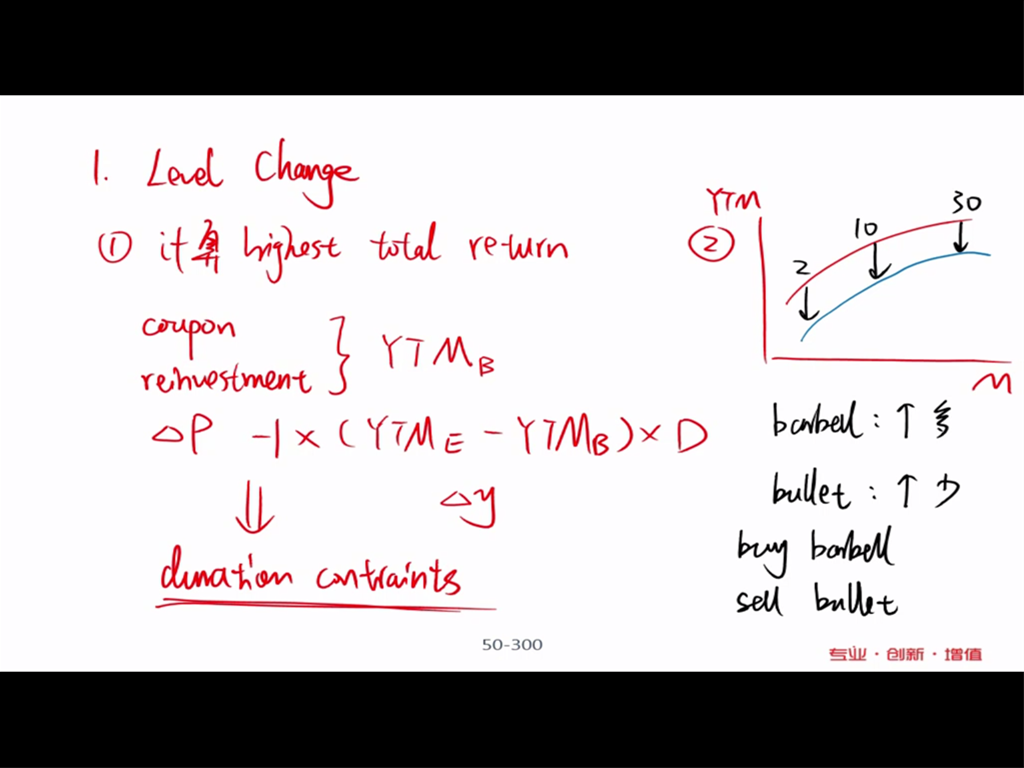 1. Level Change
① 计算 highest total return
coupon
reinvestment } YTM_B
△P -1 × (YTM_E - YTM_B) × D
⇓ △y
duration contraints
② YTM
2 10 30
M
barbell : ↑ 多
bullet : ↑ 少
buy barbell
sell bullet
50-300
专业·创新·增值